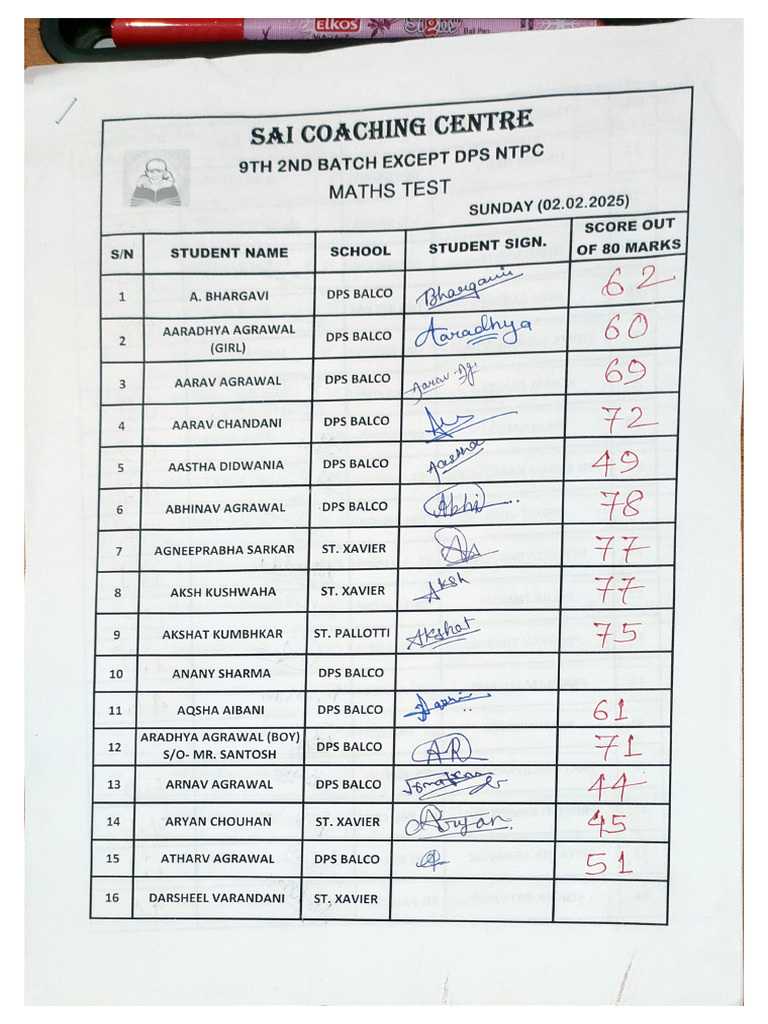 ELKOS
Ball Pen
SAI COACHING CENTRE
9TH 2ND BATCH EXCEPT DPS NTPC
MATHS TEST
SUNDAY (02.02.2025)
S/N STUDENT NAME SCHOOL STUDENT SIGN. SCORE OUT OF 80 MARKS
1 A. BHARGAVI DPS BALCO Bhargavi 62
2 AARADHYA AGRAWAL (GIRL) DPS BALCO Aaradhya 60
3 AARAV AGRAWAL DPS BALCO Aarav 69
4 AARAV CHANDANI DPS BALCO 72
5 AASTHA DIDWANIA DPS BALCO Aastha 49
6 ABHINAV AGRAWAL DPS BALCO Abhi 78
7 AGNEEPRABHA SARKAR ST. XAVIER 77
8 AKSH KUSHWAHA ST. XAVIER Aksh 77
9 AKSHAT KUMBHKAR ST. PALLOTTI Akshat 75
10 ANANY SHARMA DPS BALCO
11 AQSHA AIBANI DPS BALCO 61
12 ARADHYA AGRAWAL (BOY) S/O- MR. SANTOSH DPS BALCO AR 71
13 ARNAV AGRAWAL DPS BALCO 44
14 ARYAN CHOUHAN ST. XAVIER Aryan 45
15 ATHARV AGRAWAL DPS BALCO 51
16 DARSHEEL VARANDANI ST. XAVIER